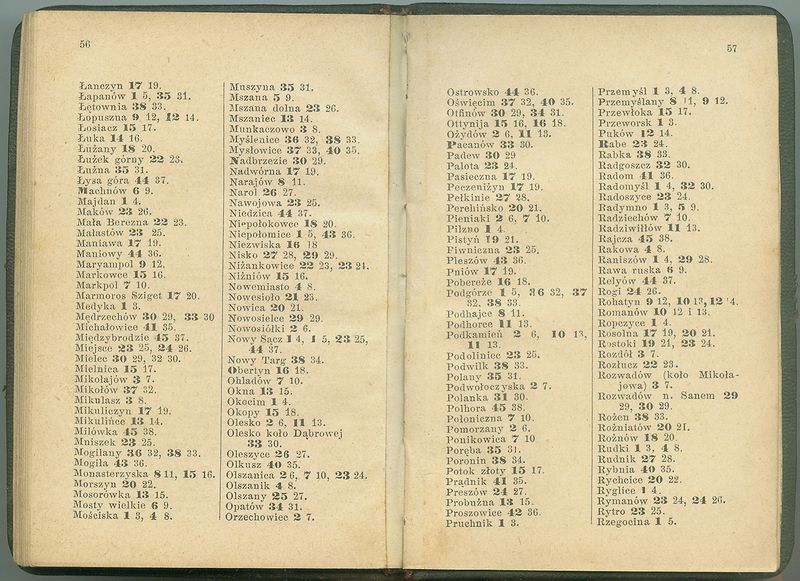 56
Łanczyn 17 19.
Łapanów 1 5, 35 31.
Łętownia 38 33.
Łopuszna 9 12, 12 14.
Łosiacz 15 17.
Łuka 14 16.
Łużany 18 20.
Łużek górny 22 23.
Łużna 35 31.
Łysa góra 44 37.
Machnów 6 9.
Majdan 1 4.
Maków 23 26.
Mała Berezna 22 23.
Małastów 23 25.
Maniawa 17 19.
Maniowy 44 36.
Maryampol 9 12.
Markowce 15 16.
Markpol 7 10.
Marmoros Sziget 17 20.
Medyka 1 3.
Mędrzechów 30 29, 33 30
Michałowice 41 35.
Międzybrodzie 45 37.
Miejsce 23 25, 24 26.
Mielec 30 29, 32 30.
Mielnica 15 17.
Mikołajów 3 7.
Mikołów 37 32.
Mikulasz 3 8.
Mikuliczyn 17 19.
Mikulińce 13 14.
Milówka 45 38.
Mniszek 23 25.
Mogilany 36 32, 38 33.
Mogiła 43 36.
Monasterzyska 8 11, 15 16.
Morszyn 20 22.
Mosorówka 13 15.
Mosty wielkie 6 9.
Mościska 1 3, 4 8.
Muszyna 35 31.
Mszana 5 9.
Mszana dolna 23 26.
Mszaniec 13 14.
Munkaczowo 3 8.
Myślenice 36 32, 38 33.
Mysłowice 37 33, 40 35.
Nadbrzezie 30 29.
Nadwórna 17 19.
Narajów 8 11.
Narol 26 27.
Nawojowa 23 25.
Niedzica 44 37.
Niepołokowce 18 20.
Niepołomice 1 5, 43 36.
Niezwiska 16 18
Nisko 27 28, 29 29.
Niżankowice 22 23, 23 21.
Niżniów 15 16.
Nowemiasto 4 8.
Nowesioło 21 23.
Nowica 20 21.
Nowosielce 29 29.
Nowosiółki 2 6.
Nowy Sącz 1 4, 1 5, 23 25,
44 37.
Nowy Targ 38 34.
Obertyn 16 18.
Ohladów 7 10.
Okna 13 15.
Okocim 1 4.
Okopy 15 18.
Olesko 2 6, 11 13.
Olesko koło Dąbrowej
33 30.
Oleszyce 26 27.
Olkusz 40 35.
Olszanica 2 6, 7 10, 23 24.
Olszanik 4 8.
Olszany 25 27.
Opatów 34 31.
Orzechowiec 2 7.
57
Ostrowsko 44 36.
Oświęcim 37 32, 40 35.
Otfinów 30 29, 34 31.
Ottynija 15 16, 16 18.
Ożydów 2 6, 11 13.
Pacanów 33 30.
Padew 30 29
Palota 23 24.
Pasieczna 17 19.
Peczeniżyn 17 19.
Pełkinie 27 28.
Perehińsko 20 21.
Pieniaki 2 6, 7 10.
Pilzno 1 4.
Pistyń 19 21.
Piwniczna 23 25.
Pleszów 43 36.
Pniów 17 19.
Pobereże 16 18.
Podgórze 1 5, 36 32, 37
32, 38 33.
Podhajce 8 11.
Podhorce 11 13.
Podkamień 2 6, 10 13,
11 13.
Podoliniec 23 25.
Podwilk 38 33.
Polany 35 31.
Podwołoczyska 2 7.
Polanka 31 30.
Polhora 45 38.
Połoniczna 7 10.
Pomorzany 2 6.
Ponikowica 7 10
Poręba 35 31.
Poronin 38 34.
Potok złoty 15 17.
Prądnik 41 35.
Preszów 24 27.
Probużna 13 15.
Proszowice 42 36.
Pruchnik 1 3.
Przemyśl 1 3, 4 8.
Przemyślany 8 11, 9 12.
Przewłoka 15 17.
Przeworsk 1 3.
Puków 12 14.
Rabe 23 24.
Rabka 38 33.
Radgoszcz 32 30.
Radom 41 36.
Radomyśl 1 4, 32 30.
Radoszyce 23 24.
Radymno 1 3, 5 9.
Radziechów 7 10.
Radziwiłłów 11 13.
Rajcza 45 38.
Rakowa 4 8.
Raniszów 1 4, 29 28.
Rawa ruska 6 9.
Relyów 44 37.
Rogi 24 26.
Rohatyn 9 12, 10 13, 12 14.
Romanów 10 12 i 13.
Ropczyce 1 4.
Rosolna 17 19, 20 21.
Rostoki 19 21, 23 24.
Rozdół 3 7.
Rozłucz 22 23.
Rozwadów (koło Mikoła-
jowa) 3 7.
Rozwadów n. Sanem 29
29, 30 29.
Rożen 38 33.
Rożniatów 20 21.
Rożnów 18 20.
Rudki 1 3, 4 8.
Rudnik 27 28.
Rybnia 40 35.
Rychcice 20 22.
Ryglice 1 4.
Rymanów 23 24, 24 26.
Rytro 23 25.
Rzegocina 1 5.